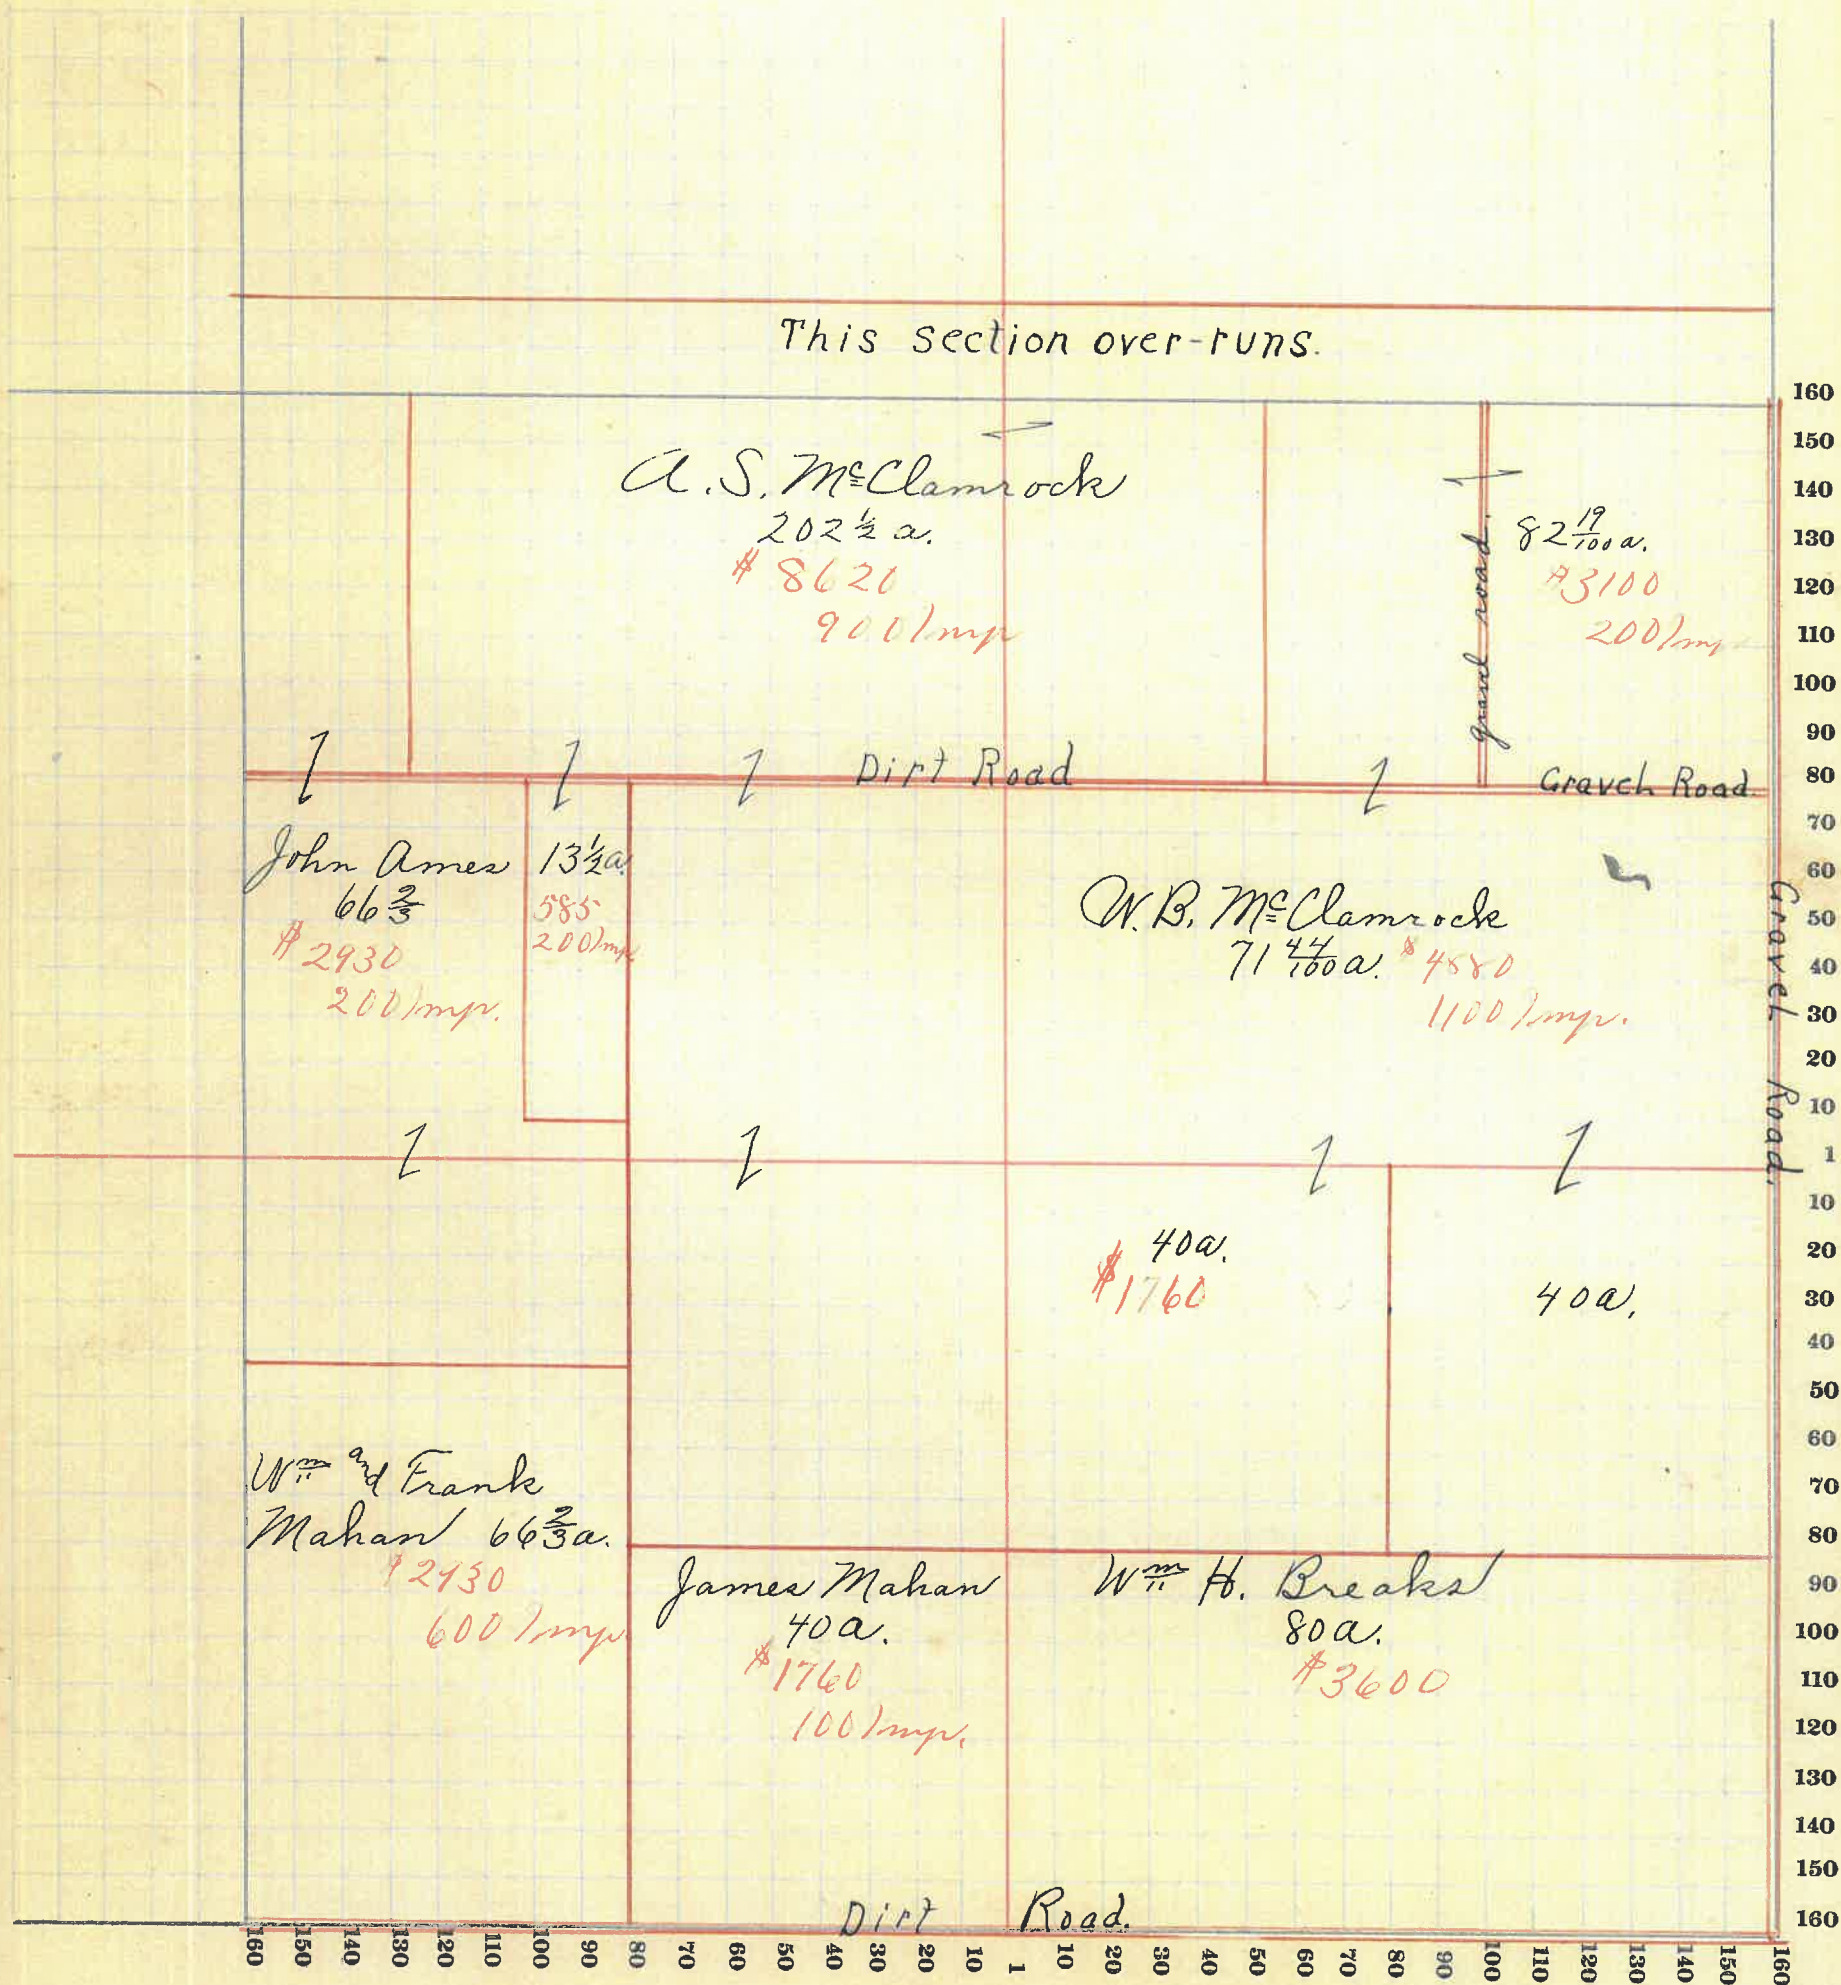 This section over-runs.
A. S. McClamrock
202 ½ a.
$ 8620
900 Imp
gravel road.
82 19/100 a.
$3100
200 Imp
Dirt Road
Gravel Road.
John Ames
66 ⅔
$2930
200 Imp.
13½a.
585
200 Imp.
W. B. McClamrock
71 44/100 a. $4880
1100 Imp.
Gravel Road.
40a.
$1760
40a.
Wm and Frank
Mahan 66⅔a.
$2930
600 Imp
James Mahan
40a.
$1760
100 Imp.
Wm H. Breaks
80a.
$3600
Dirt Road.
160
150
140
130
120
110
100
90
80
70
60
50
40
30
20
10
1
10
20
30
40
50
60
70
80
90
100
110
120
130
140
150
160
160 150 140 130 120 110 100 90 80 70 60 50 40 30 20 10 1 10 20 30 40 50 60 70 80 90 100 110 120 130 140 150 160